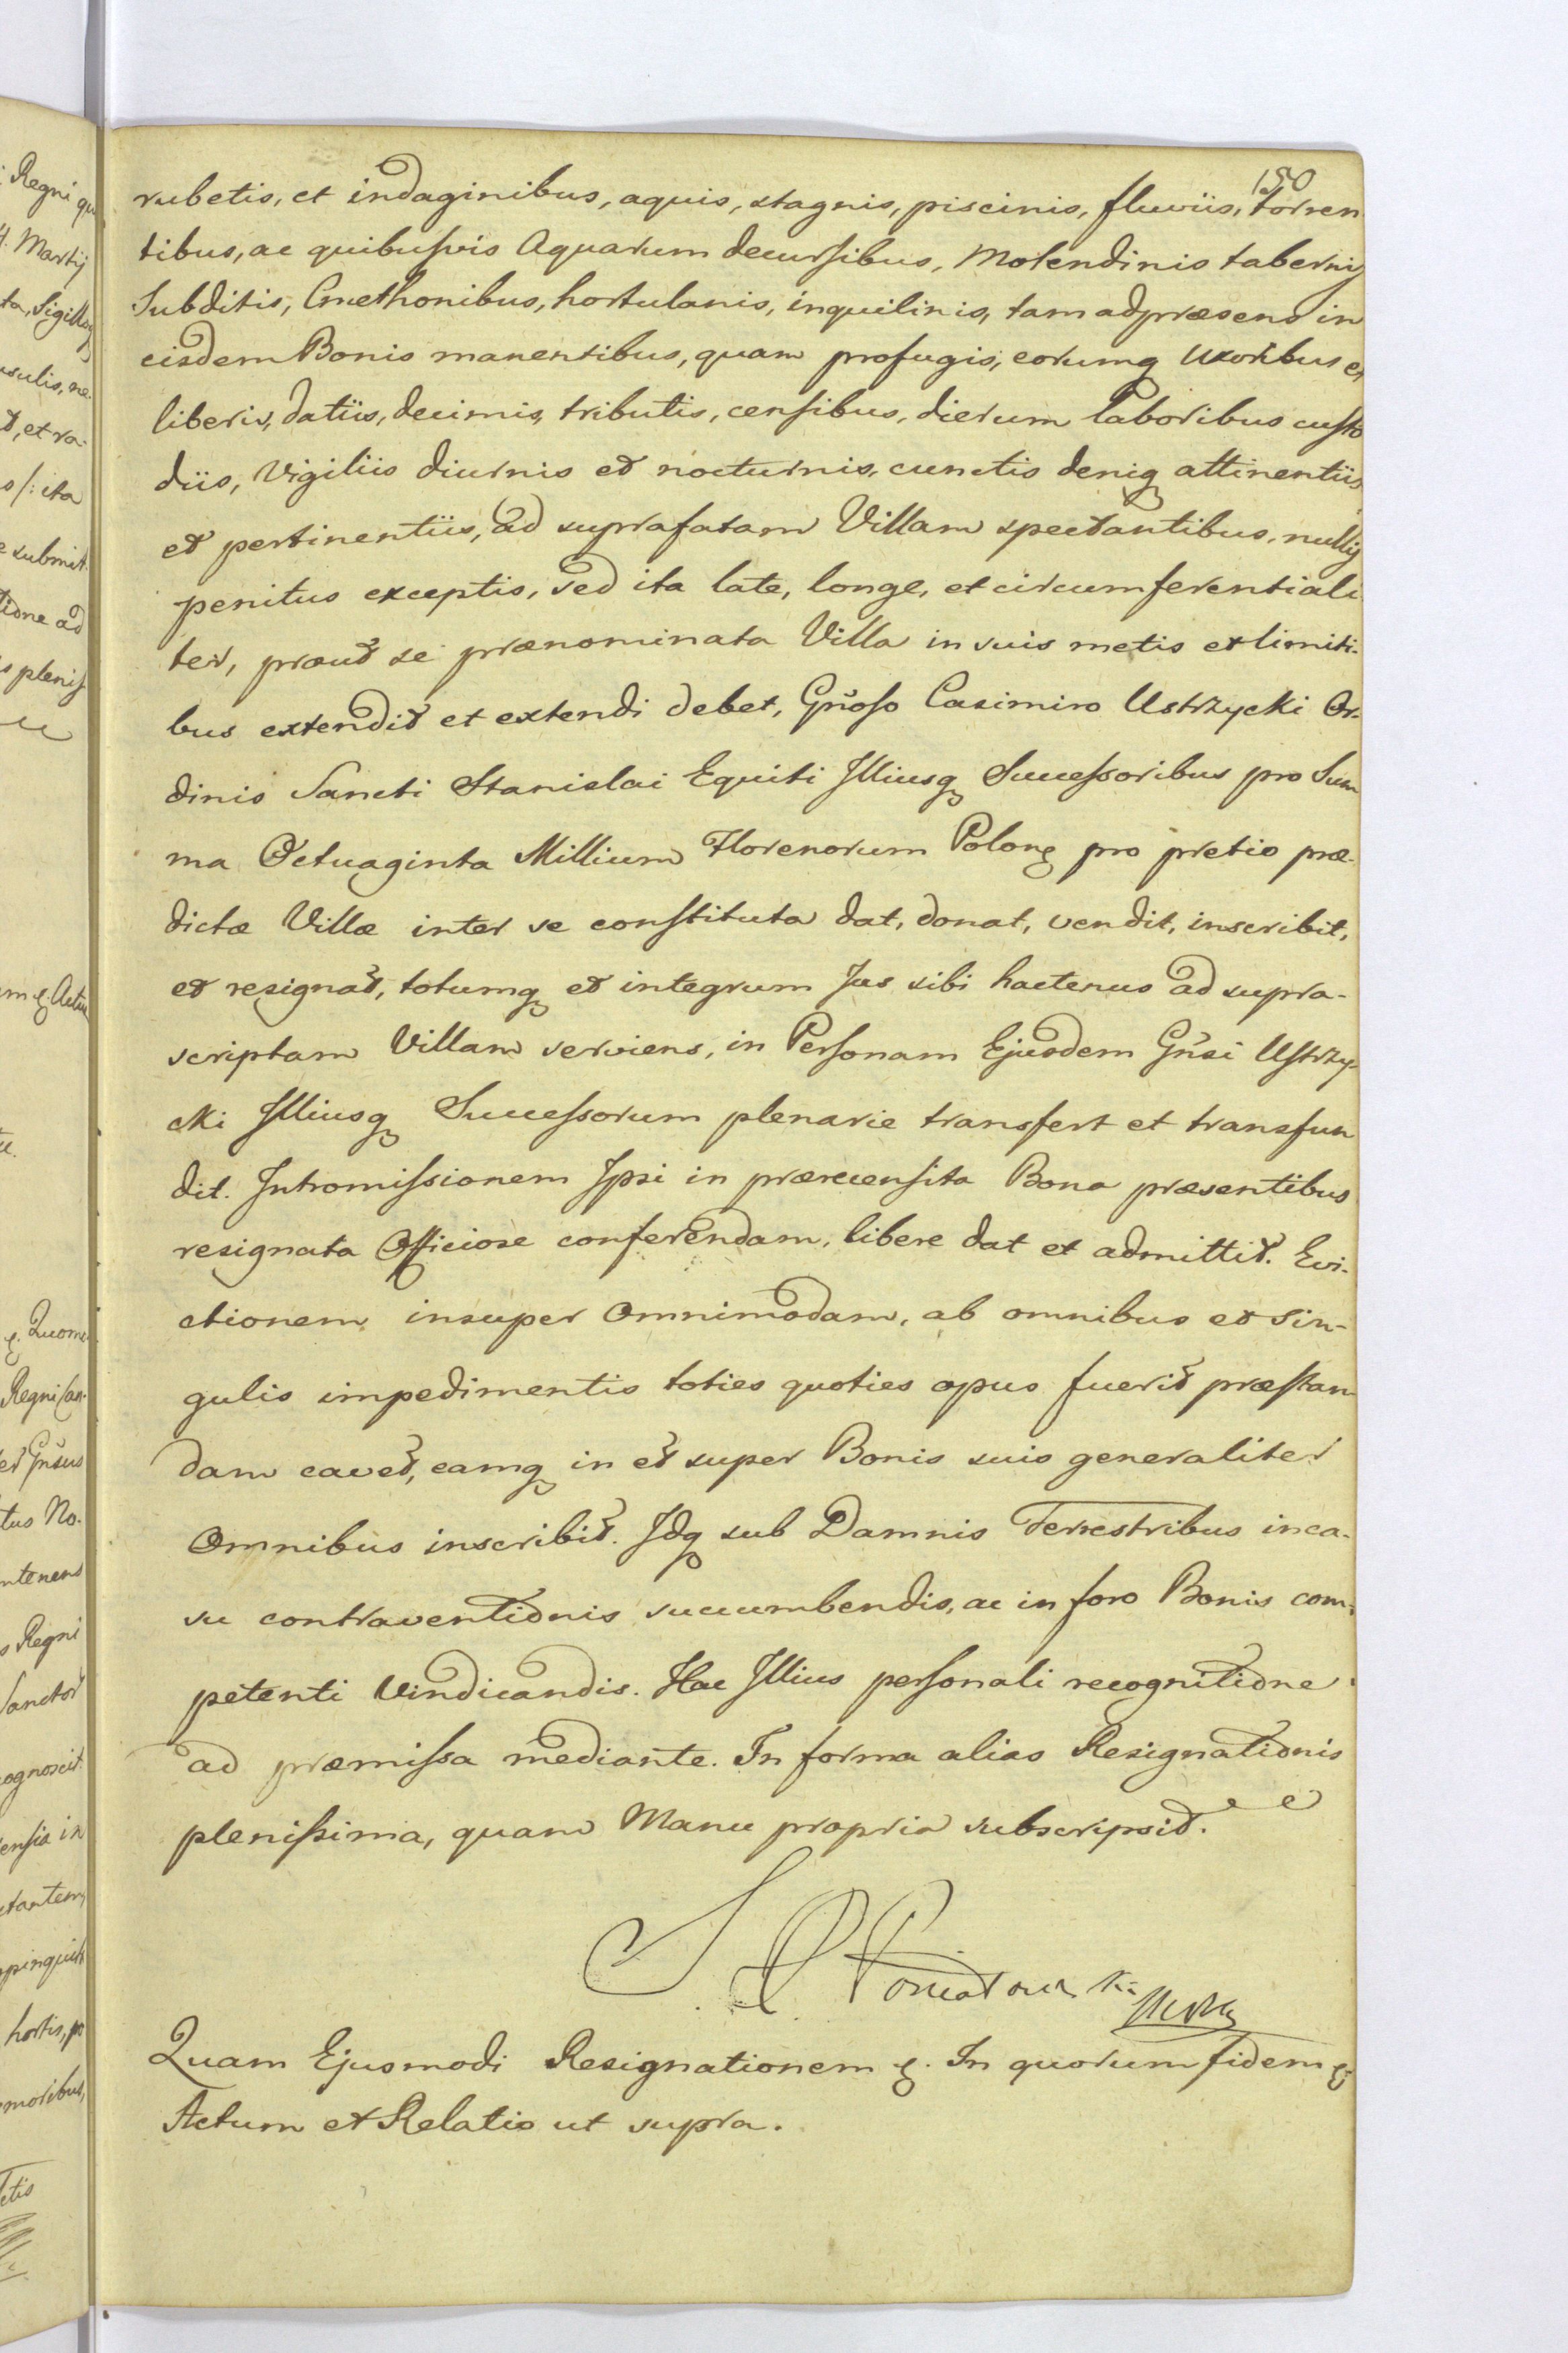 150
rubetis, et indaginibus, aquis, stagnis, piscinis, fluviis, torren
tibus, ac quibusvis Aquarum decursibus, Molendinis tabernis
Subditis, Cmethonibus, hortulanis, inquilinis, tam adpræsens in
eisdem Bonis manentibus, quam profugis, eorumq Uxoribus et
liberis, datiis, decimis, tributis, censibus, dierum laboribus custo
diis, Vigiliis diurnis et nocturnis, cunctis deniq attinentiis
et pertinentiis, ad suprafatam Villam spectantibus, nullis
penitus exceptis, sed ita late, longe, et circumferentiali
ter, prout se prænominata Villa in suis metis et limiti-
bus extendit et extendi debet, Gnoso Casimiro Ustrzycki Or-
dinis Sancti Stanislai Equiti Illiusq Successoribus pro Sum
ma Octuaginta Millium Florenorum Polon pro pretio præ-
dictæ Villæ inter se constituta dat, donat, vendit, inscribit,
et resignat, totumq et integrum Jus sibi hactenus ad supra-
scriptam Villam serviens, in Personam Ejusdem Gnsi Ustrzy-
cki Illiusq Successorum plenarie transfert et transfun
dit. Intromissionem Ipsi in prærecensita Bona præsentibus
resignata Officiose conferendam, libere dat et admittit. Evi-
ctionem insuper omnimodam, ab omnibus et sin-
gulis impedimentis toties quoties opus fuerit præstan
dam cavet, eamq in et super Bonis suis generaliter
Omnibus inscribit. Idq sub Damnis Terrestribus inca-
su contraventionis succumbendis, ac in foro Bonis com-
petenti Vindicandis. Hac Illius personali recognitione
ad præmissa mediante. In forma alias Resignationis
plenissima, quam Manu propria subscripsit.
S P Poniatowski
Quam Ejusmodi Resignationem &. In quorum fidem &
Actum et Relatio ut supra.